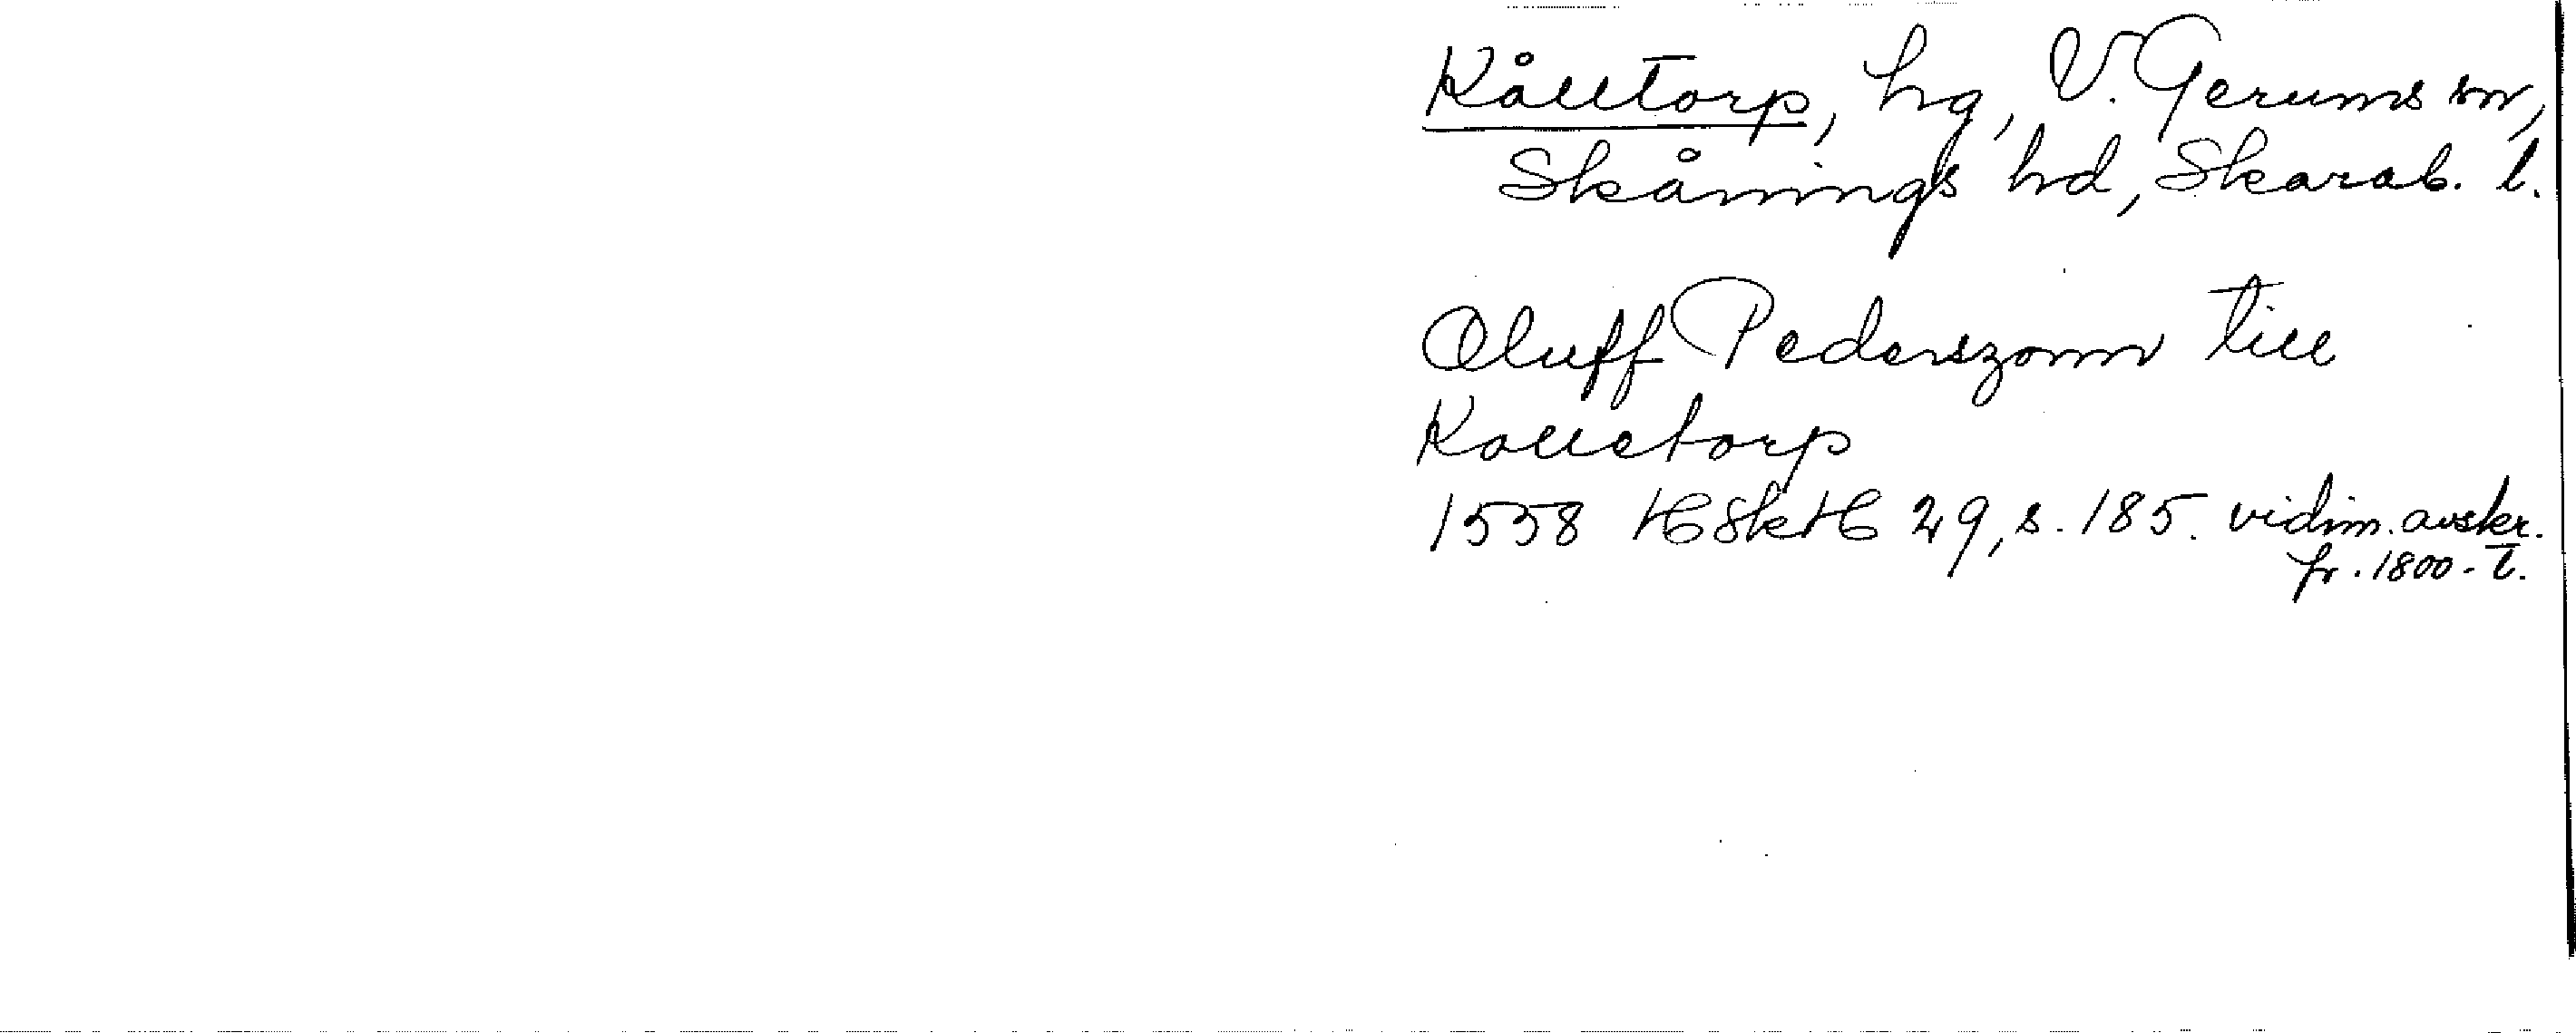 Kålltorp, hg, V. Gerums sn,
Skånings hd, Skarab. l.
Oluff Pederszonn till
Kolletorp
1558 HSkH 29, s. 185. vidim. avskr.
fr. 1800-t.